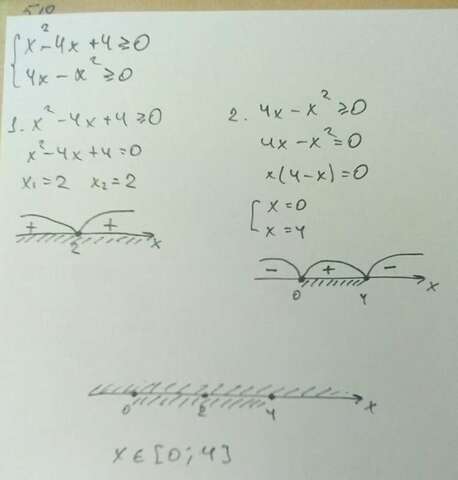 {x² - 4x + 4 ≥ 0
4x - x² ≥ 0
1. x² - 4x + 4 ≥ 0
x² - 4x + 4 = 0
x₁ = 2 x₂ = 2
+ +
2 x
2. 4x - x² ≥ 0
4x - x² = 0
x(4 - x) = 0
[x = 0
x = 4
- + -
0 4 x
0 2 4 x
x ∈ [0; 4]